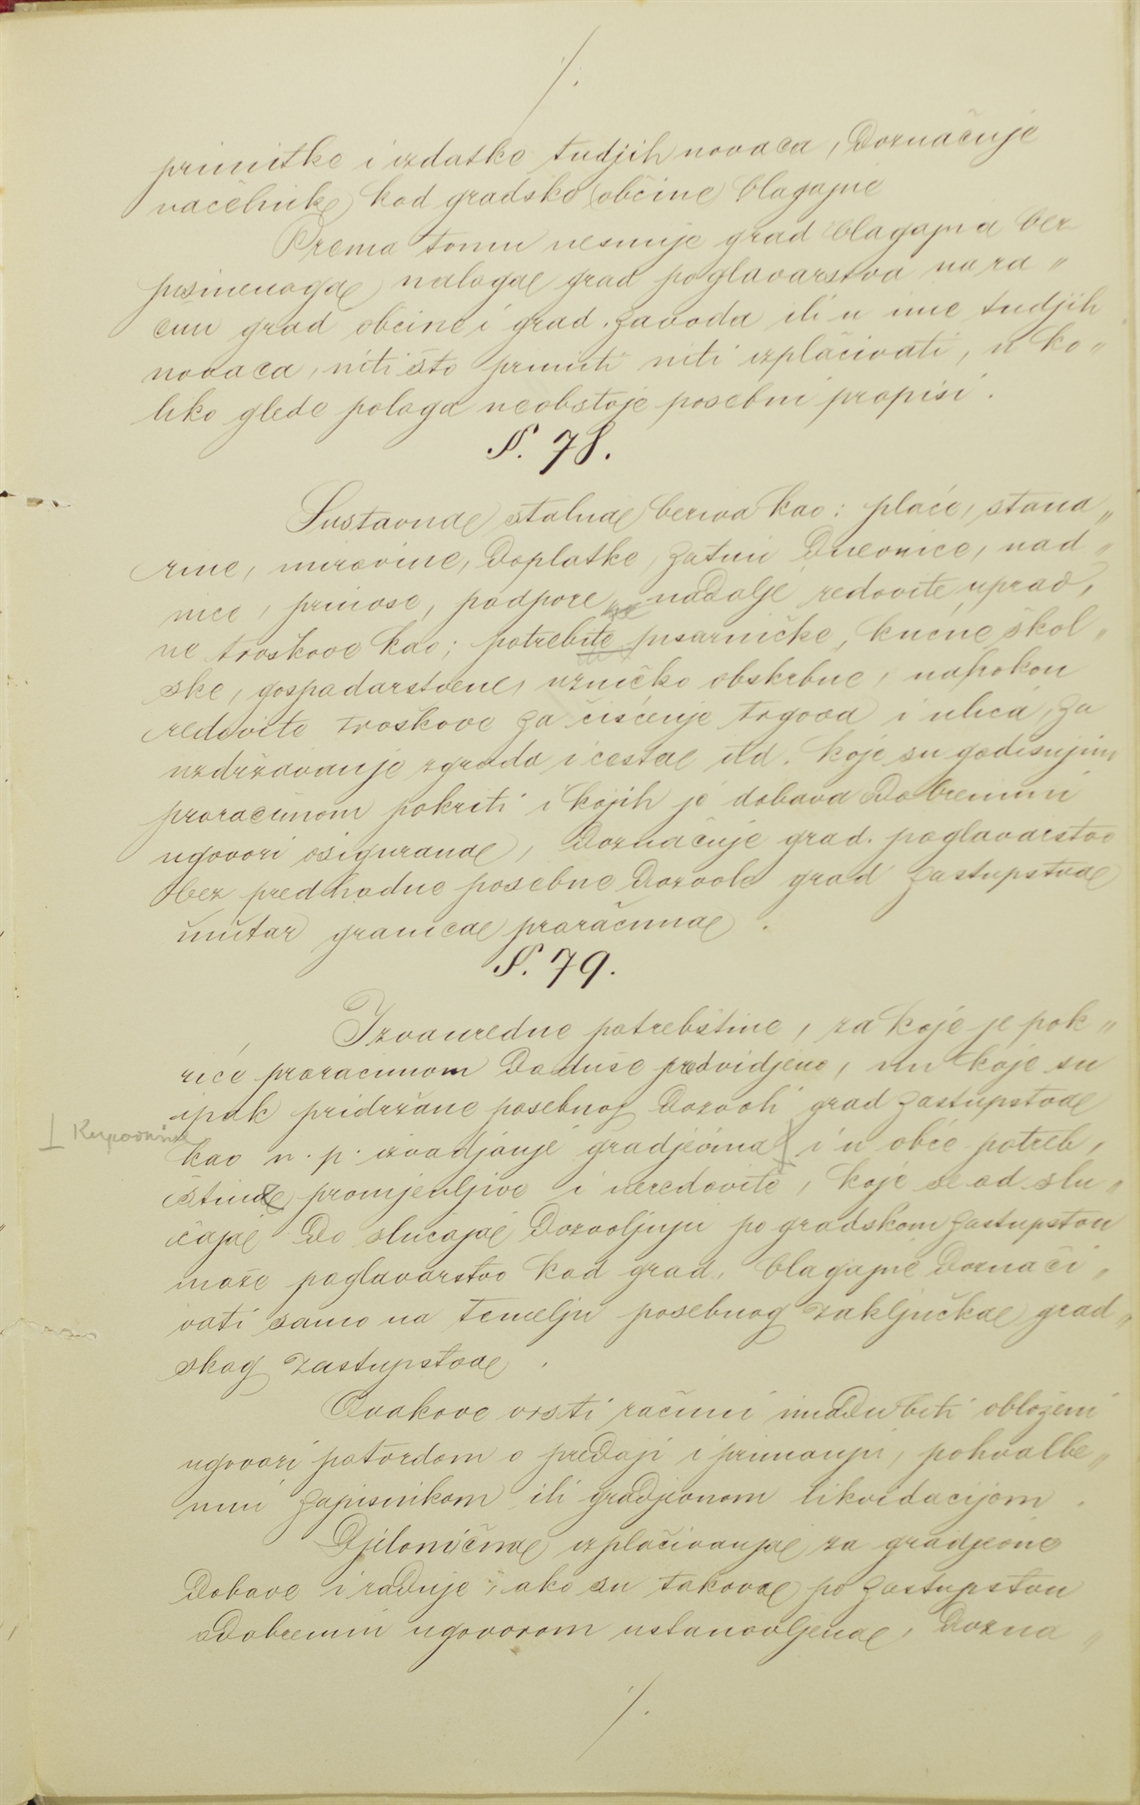 ./.
primitke i izdatke tudjih novaca, doznačuje
načelnik kod gradske občine blagajne
Prema tomu nesmije grad blagajna bez
pismenoga naloga grad poglavarstva na ra„
čun grad občine i grad. zavoda ili u ime tudjih
novaca, niti što primiti niti izplaćivati, u ko„
liko glede pologa neobstoje posebni propisi.
§. 78.
Sustavna stalna beriva kao: plaće, stana„
rine, mirovine, doplatke, zatim dnevnice, nad„
nice, prinose, podpore, nadalje redovite uprav„
ne troškove kao; potrebite pisarničke, kućne, škol„
ske, gospodarstvene, uzničko obskrbne, napokon
redovite troškove za čišćenje trgova i ulica, za
uzdržavanje zgrada i cesta itd. koje su godišnjim
proračunom pokriti i kojih je dobava odobrenimi
ugovori osigurana, doznačuje grad. poglavarstvo
bez predhodne posebne dozvole grad zastupstva
unutar granica proračuna.
§. 79.
Izvanredne potrebštine, za koje je pok„
riće proračunom doduše predvidjeno, nu koje su
ipak pridržane posebnoj dozvoli grad zastupstva
⊥ Kupovnina
kao n. p. izvadjanje gradjevina ⊥ i u obće potreb„
ština promjenljive i neredovite, koje se od slu„
čaja do slučaja dozvoljuju po gradskom zastupstvu
može poglavarstvo kod grad. blagajne doznači„
vati samo na temelju posebnog zaključka grad„
skog zastupstva.
Ovakove vrsti računi imadu biti obloženi
ugovori potvrdom o predaji i primanju, pohvalbe„
nim zapisnikom ili gradjevnom likvidacijom.
Djelomična izplaćivanja za gradjevne
dobave i radnje, ako su takova po zastupstvu
odobrenim ugovorom ustanovljena, dozna„
./.